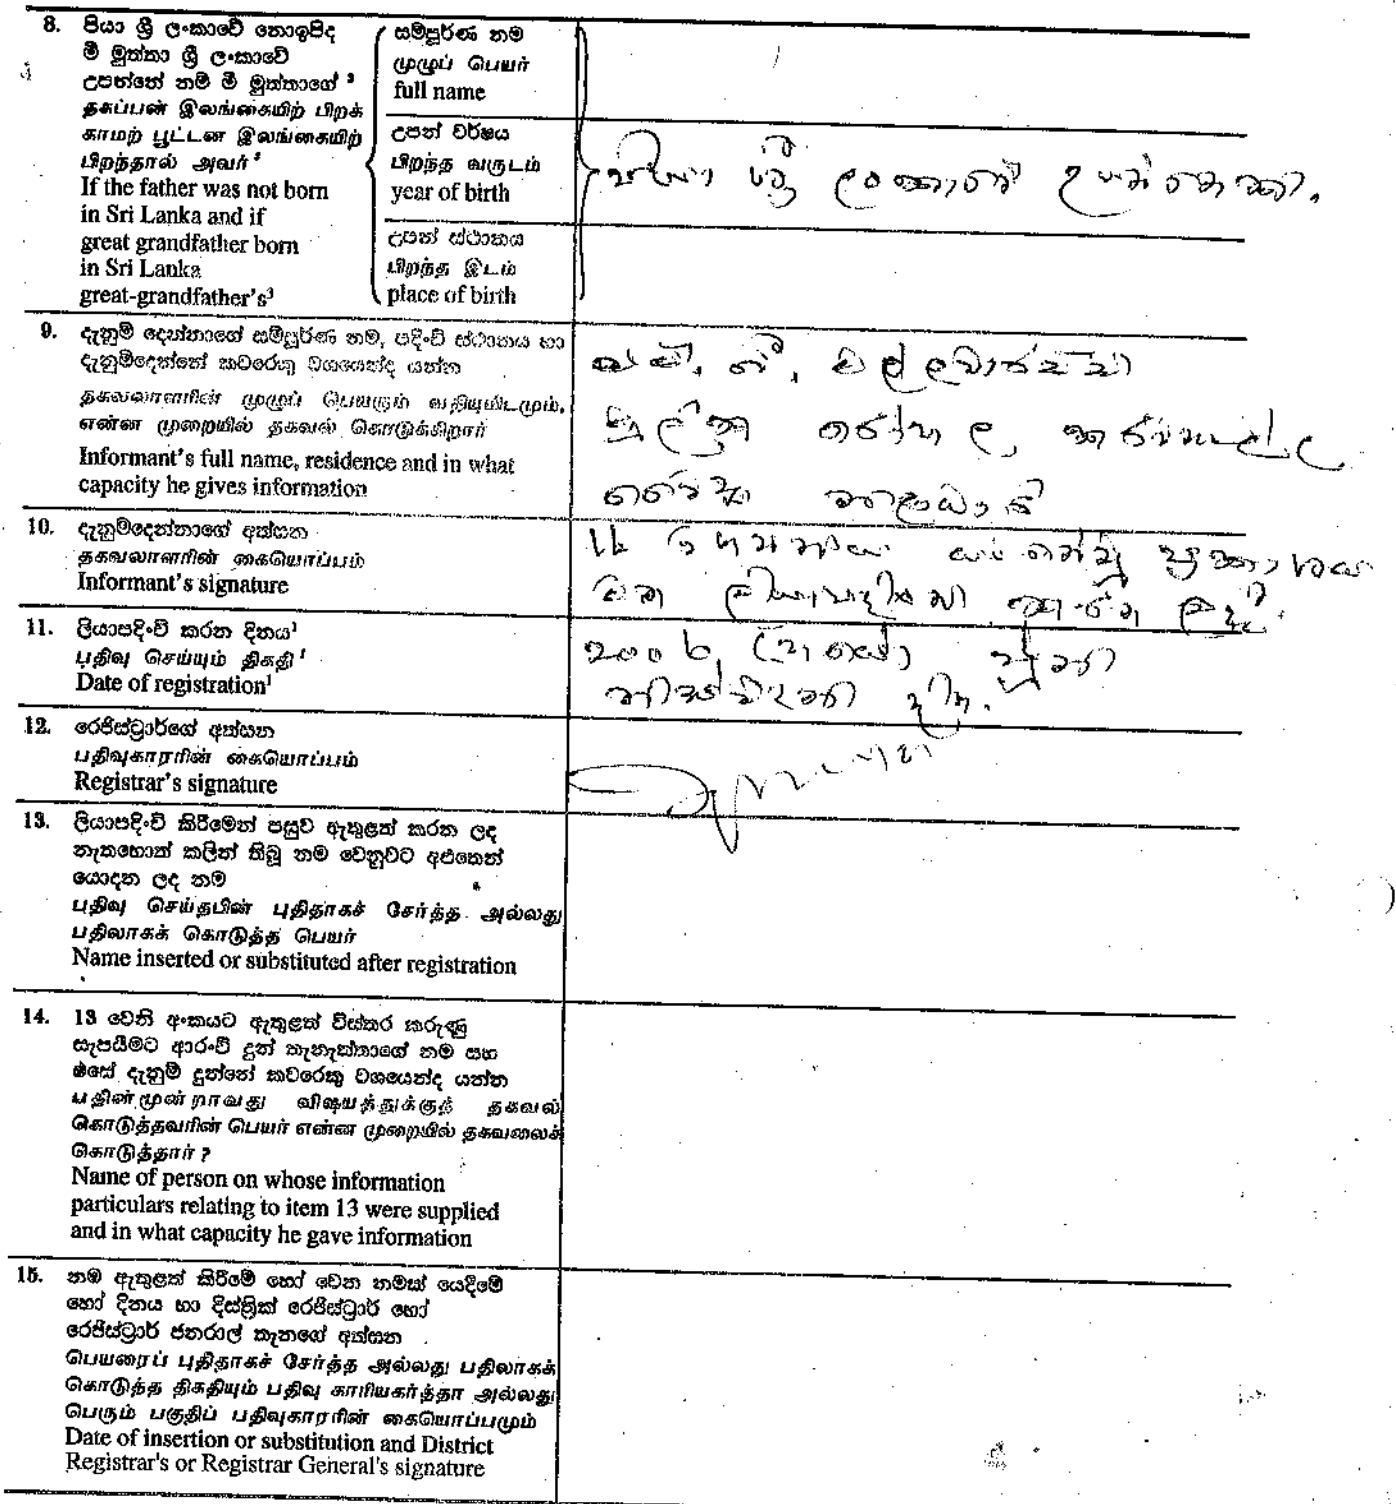 8. පියා ශ්‍රී ලංකාවේ නොඉපිද
මී මුත්තා ශ්‍රී ලංකාවේ
උපන්නේ නම් මී මුත්තාගේ ³
தகப்பன் இலங்கையிற் பிறக்
காமற் பூட்டன இலங்கையிற்
பிறந்தால் அவர் ³
If the father was not born
in Sri Lanka and if
great grandfather born
in Sri Lanka
great-grandfather's³
සම්පූර්ණ නම
முழுப் பெயர்
full name
උපන් වර්ෂය
பிறந்த வருடம்
year of birth
උපන් ස්ථානය
பிறந்த இடம்
place of birth
පියා ශ්‍රී ලංකාවේ උපන්නෙකි.
9. දැනුම් දෙන්නාගේ සම්පූර්ණ නම, පදිංචි ස්ථානය හා
දැනුම්දෙන්නේ කවරෙකු වශයෙන්ද යන්න
தகவலாளரின் முழுப் பெயரும் வதியுமிடமும்,
என்ன முறையில் தகவல் கொடுக்கிறார்
Informant's full name, residence and in what
capacity he gives information
රෝහල,
10. දැනුම්දෙන්නාගේ අත්සන
தகவலாளரின் கையொப்பம்
Informant's signature
ප්‍රකාශය
11. ලියාපදිංචි කරන දිනය¹
பதிவு செய்யும் திகதி ¹
Date of registration¹
2006
12. රෙජිස්ට්‍රාර්ගේ අත්සන
பதிவுகாரரின் கையொப்பம்
Registrar's signature
13. ලියාපදිංචි කිරීමෙන් පසුව ඇතුළත් කරන ලද
නැතහොත් කලින් තිබූ නම වෙනුවට අළුතෙන්
යොදන ලද නම
பதிவு செய்தபின் புதிதாகச் சேர்த்த அல்லது
பதிலாகக் கொடுத்த பெயர்
Name inserted or substituted after registration
14. 13 වෙනි අංකයට ඇතුළත් විස්තර කරුණු
සැපයීමට ආරංචි දුන් තැනැත්තාගේ නම සහ
ඔසේ දැනුම් දුන්නේ කවරෙකු වශයෙන්ද යන්න
பதின்மூன்றாவது விஷயத்துக்குத் தகவல்
கொடுத்தவரின் பெயர் என்ன முறையில் தகவலைக்
கொடுத்தார் ?
Name of person on whose information
particulars relating to item 13 were supplied
and in what capacity he gave information
15. නම ඇතුළත් කිරීමේ හෝ වෙන නමක් යෙදීමේ
හෝ දිනය හා දිස්ත්‍රික් රෙජිස්ට්‍රාර් හෝ
රෙජිස්ට්‍රාර් ජනරාල් තැනගේ අත්සන
பெயரைப் புதிதாகச் சேர்த்த அல்லது பதிலாகக்
கொடுத்த திகதியும் பதிவு காரியகர்த்தா அல்லது
பெரும் பகுதிப் பதிவுகாரரின் கையொப்பமும்
Date of insertion or substitution and District
Registrar's or Registrar General's signature